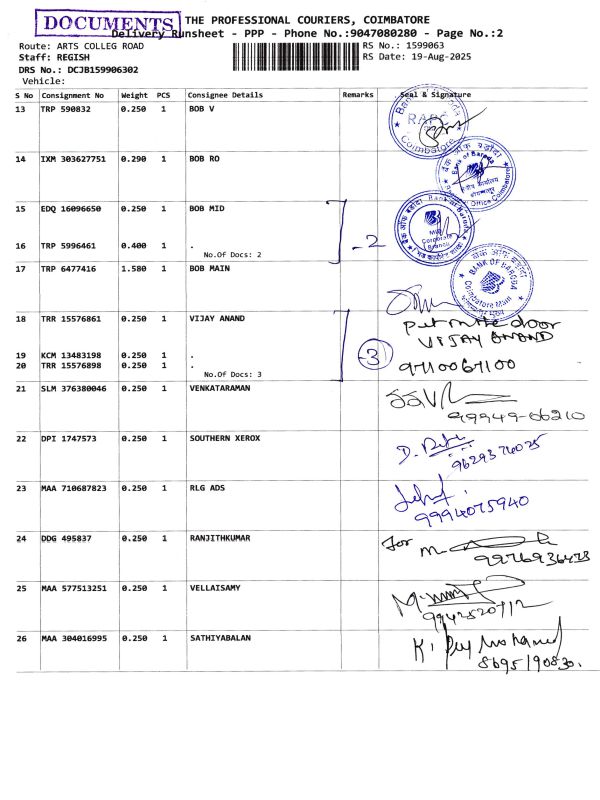 DOCUMENTS THE PROFESSIONAL COURIERS, COIMBATORE
Delivery Runsheet - PPP - Phone No.:9047080280 - Page No.:2
Route: ARTS COLLEG ROAD RS No.: 1599063
Staff: REGISH RS Date: 19-Aug-2025
DRS No.: DCJB159906302
Vehicle:
S No Consignment No Weight PCS Consignee Details Remarks Seal & Signature
13 TRP 590832 0.250 1 BOB V
Bank of Baroda
Coimbatore
14 IXM 303627751 0.290 1 BOB RO
बैंक ऑफ बड़ौदा
Bank of Baroda
15 EDQ 16096650 0.250 1 BOB MID
Bank of Baroda
Mid Corporate Branch
16 TRP 5996461 0.400 1 .
No.Of Docs: 2
-2
17 TRP 6477416 1.580 1 BOB MAIN
BANK OF BARODA
Coimbatore Main
18 TRR 15576861 0.250 1 VIJAY ANAND
Put in the door
VIJAY ANAND
19 KCM 13483198 0.250 1 .
20 TRR 15576898 0.250 1 .
No.Of Docs: 3
-3
9710067100
21 SLM 376380046 0.250 1 VENKATARAMAN
99949-66210
22 DPI 1747573 0.250 1 SOUTHERN XEROX
9629376025
23 MAA 710687823 0.250 1 RLG ADS
9994075940
24 DDG 495837 0.250 1 RANJITHKUMAR
for
25 MAA 577513251 0.250 1 VELLAISAMY
9942520712
26 MAA 304016995 0.250 1 SATHIYABALAN
8695190830.